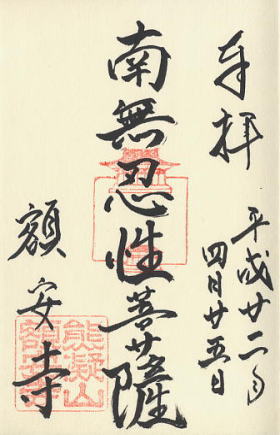 奉拝
平成廿二年
四月廿五日
南無忍性菩薩
額安寺
熊凝山
額安寺